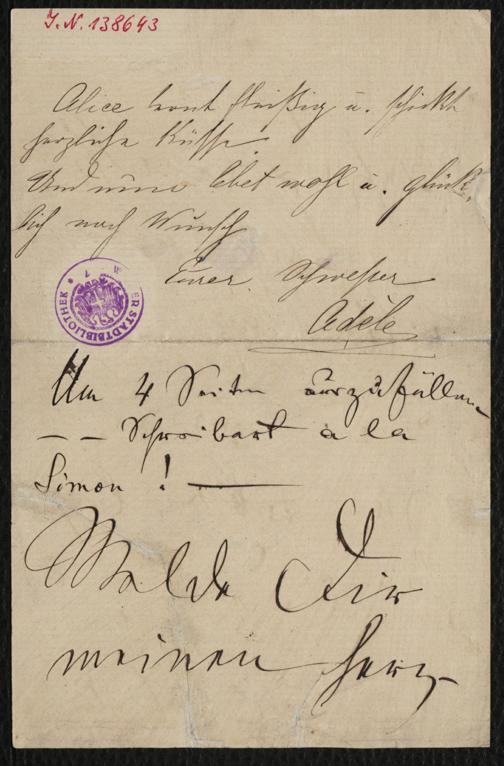 J. N. 138643
Alice lernt fleißig u. schickt
herzliche Küsse.
Und nun lebet wohl u. glück-
lich nach Wunsch
Eurer Schwester
Adèle
WIENER STADTBIBLIOTHEK
Um 4 Seiten auszufüllen
– – Schreibart à la
Simon! –
Melde Dir
meinen